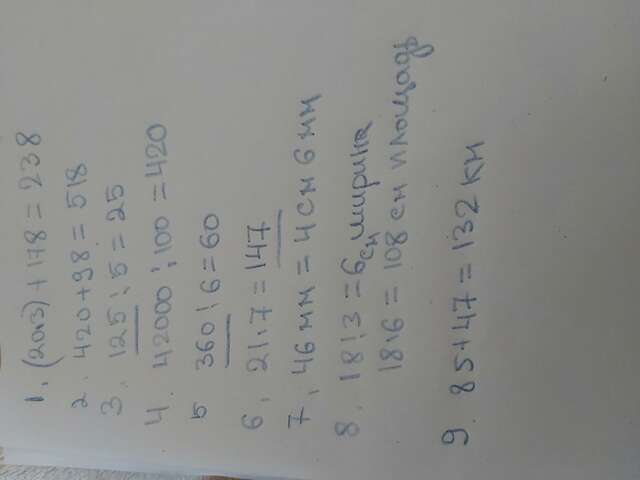 1. (20·3) + 178 = 238
2. 420+98 = 518
3. 125:5 = 25
4. 42000:100 = 420
5 360:6 = 60
6. 21·7 = 147
7, 46 мм = 4 см 6 мм
8. 18:3 = 6 см ширина
18·6 = 108 см площадь
9. 85+47 = 132 км